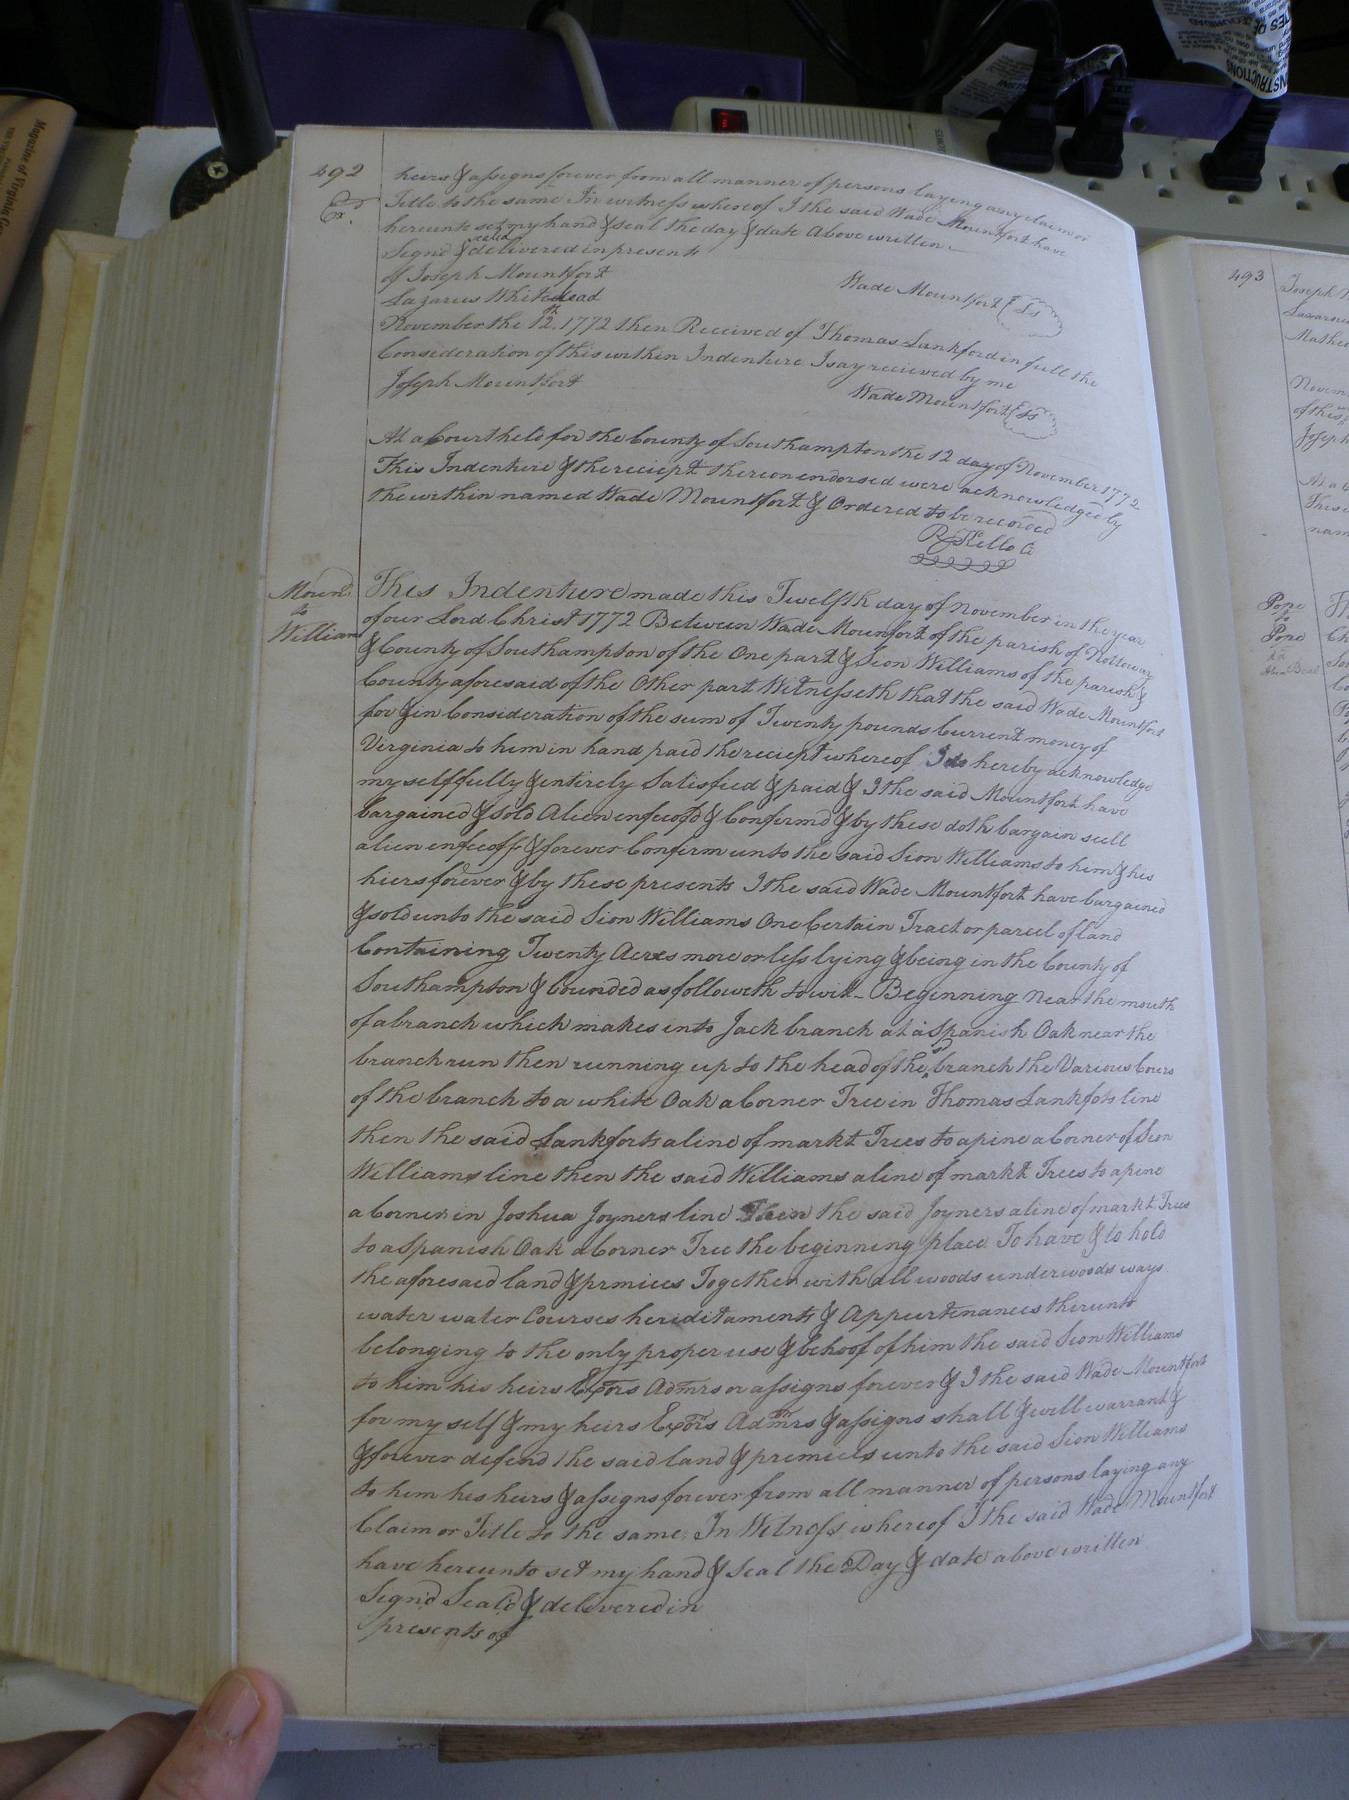 492
Ex.
heirs & assigns forever from all manner of persons laying any claim or
Title to the same In witness whereof I the said Wade Mountfort have
hereunto set my hand & seal the day & date above written
Signd & seald delivered in presents
of Joseph Mountfort
Lazarus Whitehead
Wade Mountfort Ls
November the 12th 1772 then Received of Thomas Lankford in full the
Consideration of this within Indenture I say recieved by me
Joseph Mountfort
Wade Mountfort Ls
At a Court held for the County of Southampton the 12 day of November 1772
This Indenture & the reciept thereon endorsed were acknowledged by
the within named Wade Mountfort & Ordered to be recorded
R Kello C
Mount.
to
William
This Indenture made this Twelfth day of November in the year
of our Lord Christ 1772 Between Wade Mounfort of the parish of Nottoway
& County of Southampton of the One part & Sion Williams of the parish &
County aforesaid of the Other part Witnesseth that the said Wade Mountfort
for & in Consideration of the sum of Twenty pounds Current money of
Virginia to him in hand paid the reciept whereof I do hereby acknowledge
my self fully & entirely Satisfied & paid & I the said Mountfort have
bargained & sold Alien enfeofd & Confirmd & by these doth bargain sell
alien enfeoff & forever Confirm unto the said Sion Williams to him & his
hiers forever & by these presents I the said Wade Mountfort have bargained
& sold unto the said Sion Williams One Certain Tract or parcel of land
Containing Twenty Acres more or less lying & being in the County of
Southampton & bounded as followeth to wit - Beginning near the mouth
of a branch which makes into Jack branch at a Spanish Oak near the
branch run then running up to the head of the sd branch the Various Cours
of the branch to a white Oak a Corner Tree in Thomas Lankfots line
then the said Lankforts a line of markt Trees to a pine a Corner of Sion
Williams line then the said Williams a line of markt Trees to a pine
a Corner in Joshua Joyners line Then the said Joyners a line of markt Trees
to a Spanish Oak a Corner Tree the beginning place To have & to hold
the aforesaid land & prmices Together with all woods underwoods ways
water water Courses hereditaments & Appurtenances therunto
belonging to the only proper use & behoof of him the said Sion Williams
to him his heirs Exors Admrs or assigns forever & I the said Wade Mountfort
for my self & my heirs Exors Admrs & assigns shall & will warrant &
& forever defend the said land & premices unto the said Sion Williams
to him his heirs & assigns forever from all manner of persons laying any
Claim or Title to the same. In Witness whereof I the said Wade Mountfort
have hereunto set my hand & Seal the Day & date above written
Signd Seald & delivered in
presents of
493
Joseph
of this
Joseph
At a
This
nam
Pope
to
Pope
Magazine of Virginia
INSTRUCTIONS